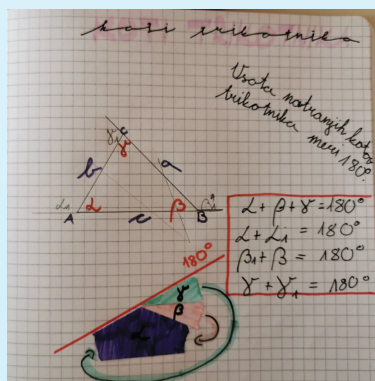 koti trikotnika
Vsota notranjih kotov
trikotnika meri 180°.
γ₁ C
γ
b
a
α₁ α β β₁
A c B
α + β + γ = 180°
α + α₁ = 180°
β₁ + β = 180°
γ + γ₁ = 180°
180°
γ
β
α